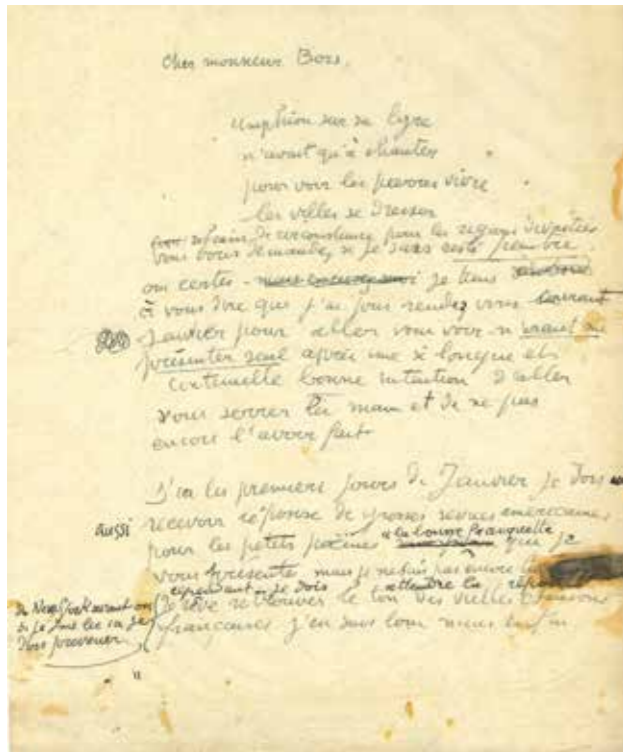 Cher monsieur Bois,
Amphion sur sa lyre
n'avait qu'à chanter
pour voir les pierres vivre
les villes se dresser
refrain de circonstance pour les
vous vous demandez si je suis resté peintre
oui certes - je tiens
à vous dire que j'ai pris rendez vous courant
Janvier pour aller vous voir - n'osant me
présenter seul après une si longue et
continuelle bonne intention d'aller
vous serrer la main et de ne pas
encore l'avoir fait
D'ici les premiers jours de Janvier je dois
aussi recevoir réponse de grosses revues américaines
pour les petits poèmes à la bonne franquette que je
vous présente mais je ne puis pas encore
cependant - je dois attendre la réponse
de New York avant on
Je rêve retrouver le ton des vieilles chansons
si je
dois prévenir
françaises j'en suis loin mais enfin